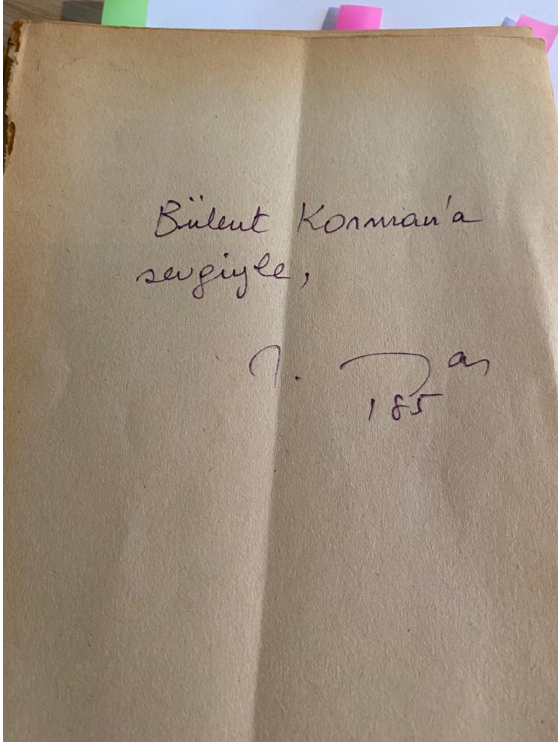 Bülent Korman'a
sevgiyle,
185